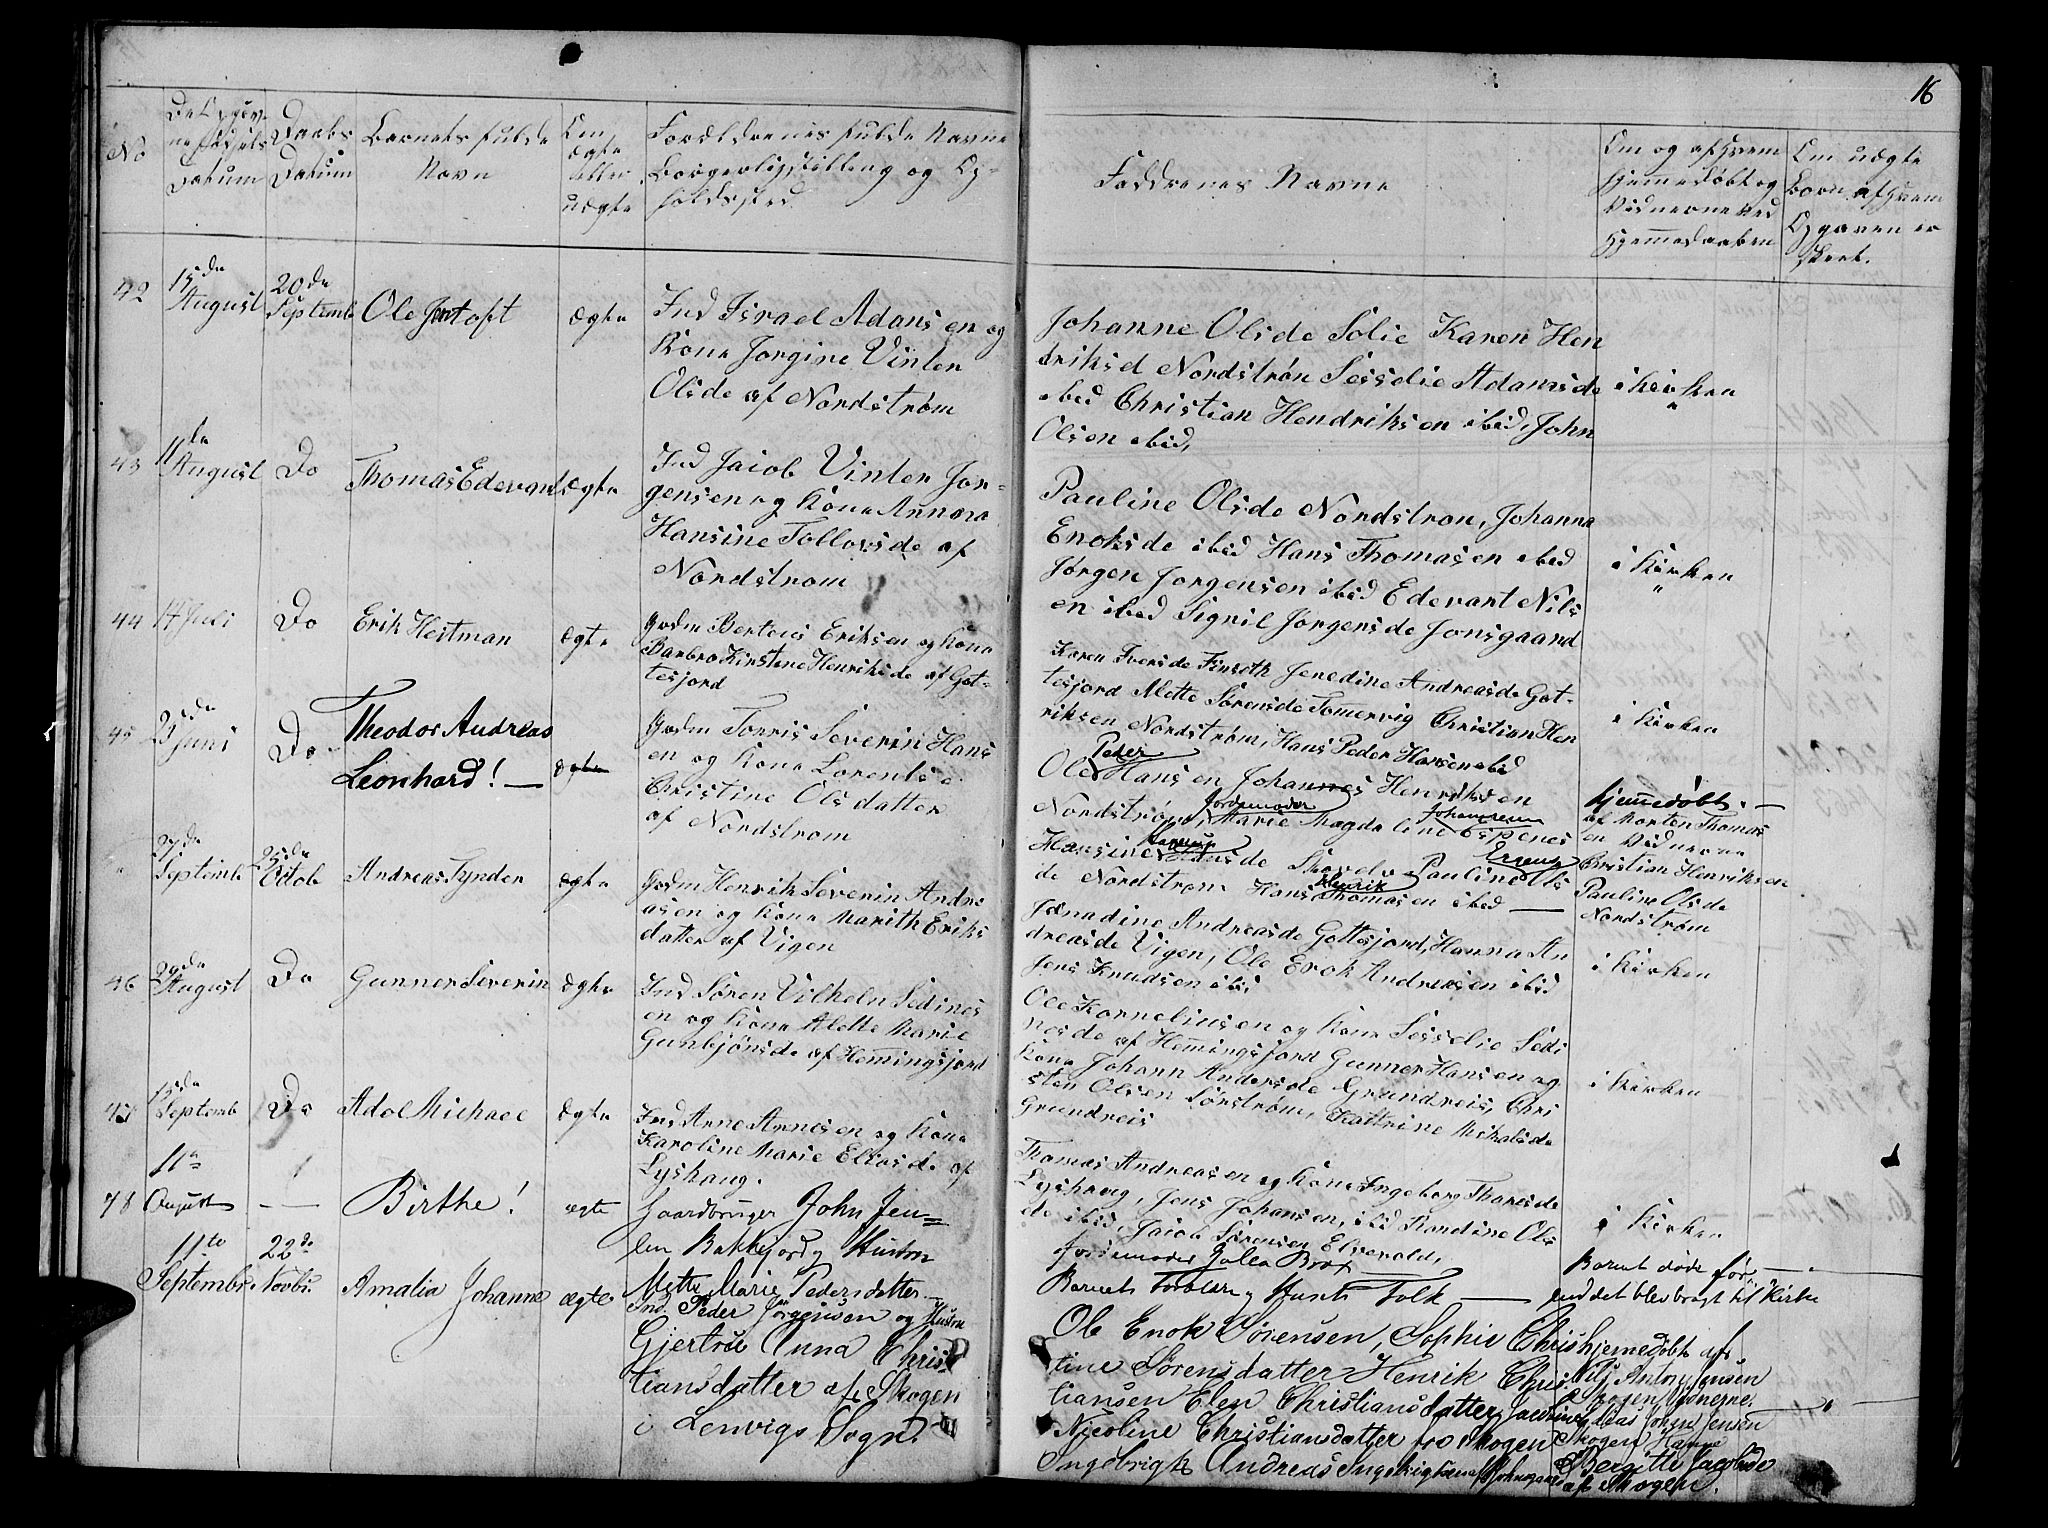 16
No
Datum
Daabs
Datum
Barnets fulde
Navn
Om
ægte
eller
uægte
Forældrenes fulde Navne
Borgerligstilling og Op-
holdssted
Faddrenes Navne
Om og af hvem
hjemmedøbt og
Vidnerne ved
hjemmedaaben
Om uægte
Børn af hvem
Opgaven er
skeet.
42
15de
August
20de
Septemb
Ole Jentoft
ægte
Ind Israel Adamsen og
Kone Jorgine Vinter
Olsde af Nordstrøm
Johanne Olsde Solie Karen Hen
driksd Nordstrøn Sesselie Adamsde
ibid Christian Hendriksen ibid, John
Olsen ibid,
i kirken
43
11te
August
Do
Thomas Edevant
ægte
Ind Jacob Vinter Jor-
gensen og Kone Annora
Hansine Tollevsde af
Nordstrom
Pauline Olsde Nordstron, Johanna
Enoksde ibid Hans Thomasen ibid
Jørgen Jorgensen ibid Edevart Nils
en ibid Signil Jorgensde Jonsgaard
i Kirken
44
14 Juli
Do
Erik Heitman
ægte
Gdm Berteus Eriksen og Kone
Barbro Kirstine Henriksde af Got-
tesjord
Karen Iversde Finseth Jenedine Andreasde Got-
tesjord Mette Sørensde Tomervig Christian Hen
riksen Nordstrøm, Hans Peder Hansen ibid
i Kirken
45
23de
Juni
Do
Theodor Andreas
Leonhard! —
ægte
Gdm Torris Severin Hans
en og Kone Lorentse
Christine Olsdatter
af Nordstrom
Peder
Ole Hansen Johannes Henriksen
Nordstrøm, Marie Magdaline Espenes
Jordemoder
Johannesen
Hansine Hansde Skarelv Pauline Ols
de Nordstrøm Hans Thomasen ibid —
Henrik
hjemmedøbt. —
af Morten Thomas
en Vidnerne
Christian Henriksen
Pauline Olsde
Nordstrøm
27de
Septemb
25de
Octob
Andreas Tynder
ægte
Gdm Henrik Severin Andre
asen og Kone Marith Eriks
datter af Vigen
Jænadine Andreasde Gottesjord, Hanna An
dreasde Vigen, Ole Erok Andreasen ibid
Jens Knudsen ibid
i Kirken
46
29de
August
Do
Gunner Severin
ægte
Ind Søren Vilhelm Sedines
en og Kone Alette Marie
Gunbjønsde af Hemingsjord
Ole Kornelius en og Kone Sesselie Sedi
nesde af Hemingsjord Gunner Hansen og
Kone Johann Andersde Grundreis, Chri
sten Olsen Sørstrøm, Kattrine Mikalsde
Grundreis
i Kirken
47
13de
Septemb
Do
Adol Michael
ægte
Ind Arne Arnesen og Kone
Karoline Marie Eliasde af
Lyshaug.
Thomas Andreasen og Kone Ingeborg Tharesde
Lyshaug, Jens Johansen, ibid Kandine Ols
de ibid, Jacob Sørensen Elvevold,
i Kirken
48
11te
August
—
Birthe!
ægte
Gaardbruger John Jen=
sen Bakkejord og Hustru
Mette Marie Pedersdatter
Jordemoder Galen Brox
Barnets Forældre og Huuts Folk —
Barnet døde før
end det blev bragt til Kirke
11te
Septembr.
22de
Novbr.
Amalia Johanne
ægte
Ind. Peder Jørgensen og Hustru
Gjertru Anna Chris
tiansdatter af Skogen
i Lenvigs Sogn.
Ole Enok Sørensen, Sophie Chris
tine Sørensdatter Henrik Chris.
tiansen Elen Christiansdatter
Nicoline Christiansdatter fro Skogen
Ingebrigt Andreas
hjemmedøbt af
Antony Jensen
Skogen Vidnerne
Johan Jensen
Skogen Hanne
Bergitte Jacobsde
af Skogen.